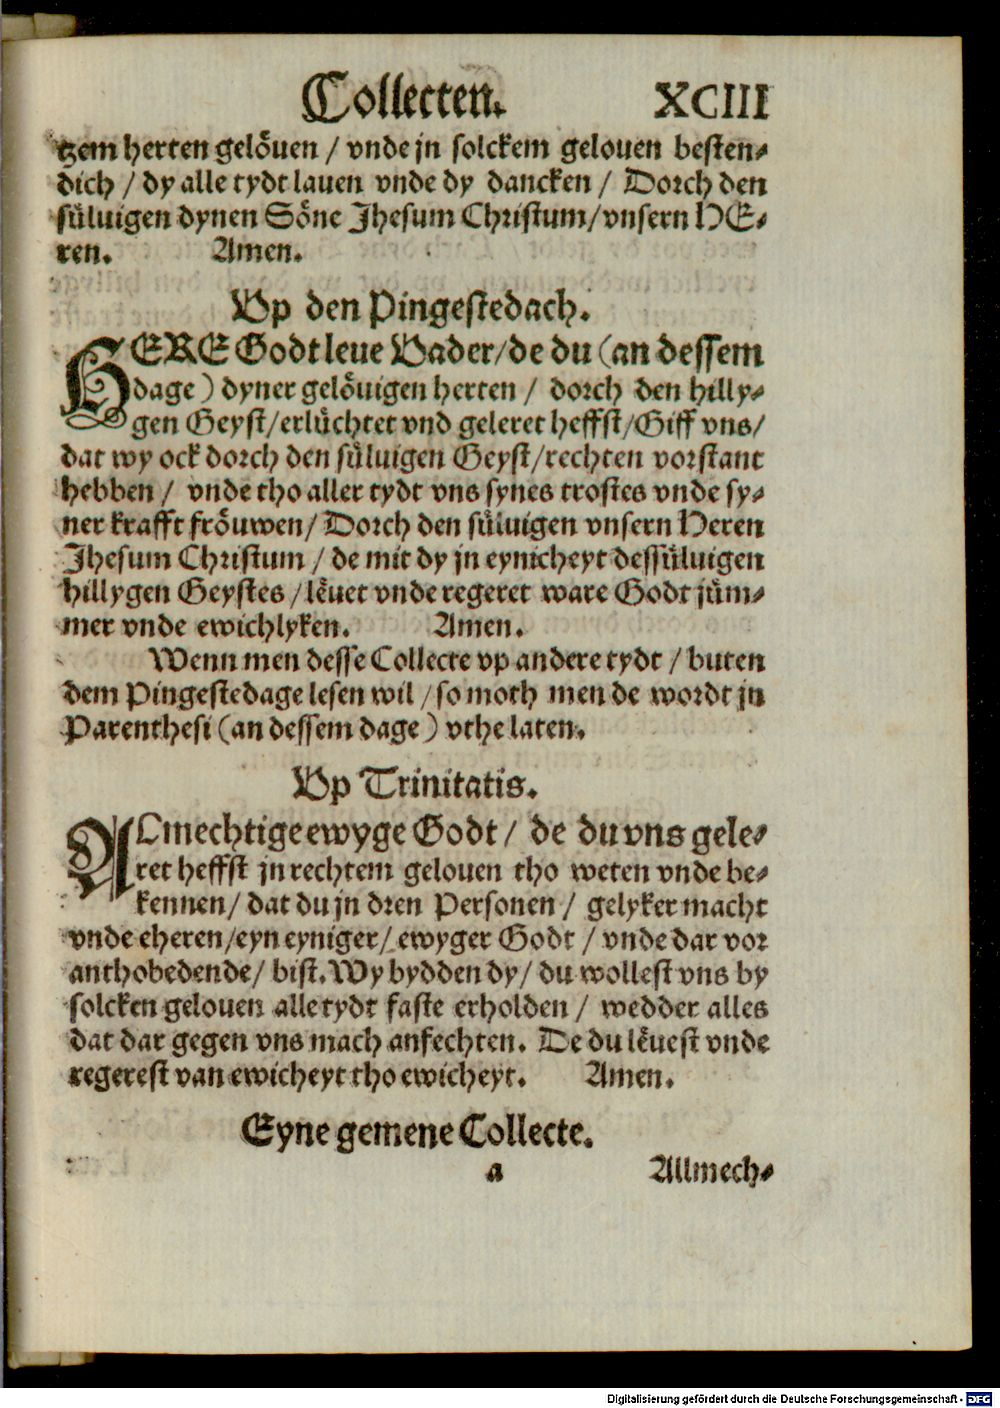 Collecten. XCIII
tzem herten gelöuen / vnde jn solckem gelouen besten⸗
dich / dy alle tydt lauen vnde dy dancken / Dorch den
süluigen dynen Söne Jhesum Christum/vnsern HE⸗
ren. Amen.
Vp den Pingestedach.
HERE Godt leue Vader/de du (an dessem
dage) dyner gelöuigen herten / dorch den hilly⸗
gen Geyst/erlüchtet vnd geleret heffst/Giff vns/
dat wy ock dorch den süluigen Geyst/rechten vorstant
hebben / vnde tho aller tydt vns synes trostes vnde sy⸗
ner krafft fröuwen/ Dorch den süluigen vnsern Heren
Jhesum Christum / de mit dy jn eynicheyt dessüluigen
hillygen Geystes /leuet vnde regeret ware Godt jüm⸗
mer vnde ewichlyken. Amen.
Wenn men desse Collecte vp andere tydt / buten
dem Pingestedage lesen wil /so moth men de wordt jn
Parenthesi (an dessem dage) vthe laten.
Vp Trinitatis.
ALmechtige ewyge Godt / de du vns gele⸗
ret heffst jn rechtem gelouen tho weten vnde be⸗
kennen/ dat du jn dren Personen / gelyker macht
vnde eheren/eyn eyniger/ ewyger Godt / vnde dar vor
anthobedende/ bist. Wy bydden dy/ du wollest vns by
solcken gelouen alle tydt faste erholden / wedder alles
dat dar gegen vns mach anfechten. De du leuest vnde
regerest van ewicheyt tho ewicheyt. Amen.
Eyne gemene Collecte.
a Allmech⸗
Digitalisierung gefördert durch die Deutsche Forschungsgemeinschaft - DFG